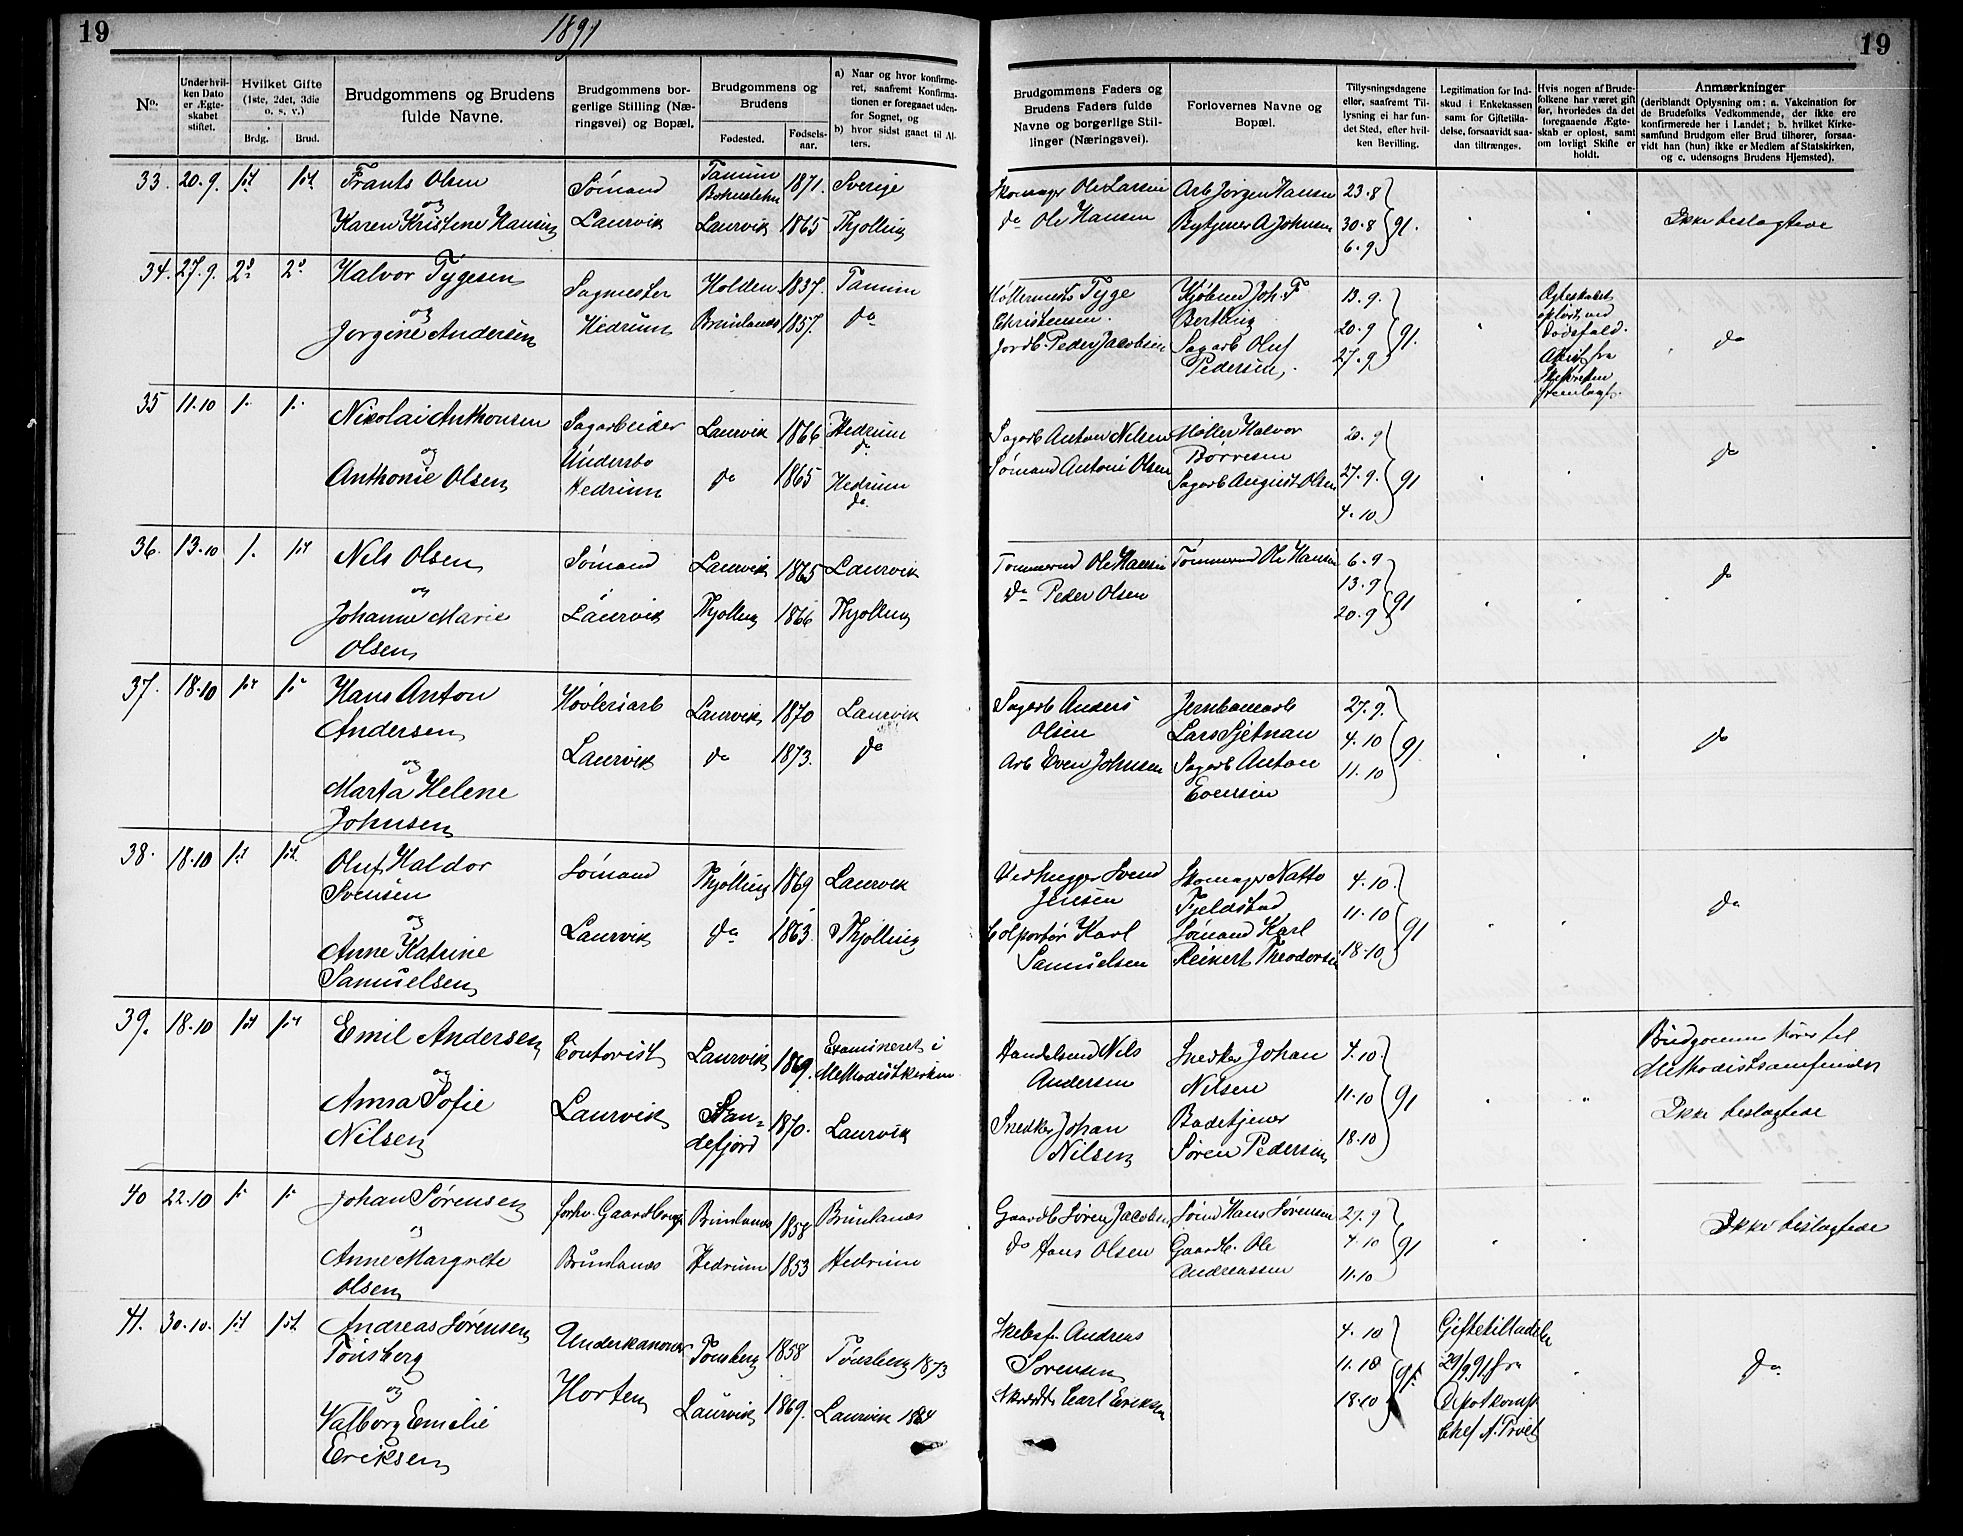 19
1891
19
No.
Under hvil-
ken Dato
er Ægte-
skabet
stiftet.
Hvilket Gifte
(1ste, 2det, 3die
o. s. v.)
Brdg.
Brud.
Brudgommens og Brudens
fulde Navne.
Brudgommens bor-
gerlige Stilling (Næ-
ringsvei) og Bopæl.
Brudgommens og
Brudens
Fødested.
Fødsels-
aar.
a) Naar og hvor konfirme-
ret, saafremt Konfirma-
tionen er foregaaet uden-
for Sognet, og
b) hvor sidst gaaet til Al-
ters.
Brudgommens Faders og
Brudens Faders fulde
Navne og borgerlige Stil-
linger (Næringsvei).
Forlovernes Navne og
Bopæl.
Tillysningsdagene
eller, saafremt Til-
lysning ei har fun-
det Sted, efter hvil-
ken Bevilling.
Legitimation for Ind-
skud i Enkekassen
samt for Giftetilla-
delse, forsaavidt saa-
dan tiltrænges.
Hvis nogen af Brude-
folkene har været gift
før, hvorledes da det
foregaaende Ægte-
skab er opløst, samt
om lovligt Skifte er
holdt.
Anmærkninger
(deriblandt Oplysning om: a. Vakcination for
de Brudefolks Vedkommende, der ikke ere
konfirmerede her i Landet; b. hvilket Kirke-
samfund Brudgom eller Brud tilhører, forsaa-
vidt han (hun) ikke er Medlem af Statskirken,
og c. udensogns Brudens Hjemsted).
33. 20.9. 1st 1st Frants Olsen Sømand Tanum 1871. Sverige
Bohuslehn
og
Karen Kristine Hansen Laurvik Laurvik 1865 Thjolling
Skomager Ole Larsen Arb Jørgen Hansen 23.8
do Ole Hansen Bytjener A Johnsen 30.8 91. Ikke beslægtede
6.9
34. 27.9. 2d 2d Halvor Tygesen Sagmester Holden 1837. Tanum
og
Jørgine Andersen Hedrum Brunlanæs 1857. do
Møllermest Tyge Kjøbmd Joh. F. 13.9. Ægteskabet
Christensen. Bertling 20.9 91. opløst ved
Dødsfald. do
Jordb. Peder Jacobsen Sagarb Oluf 27.9 Attest fra
Pedersen. Skifteretten
fremlagt.
35 11.10 1. 1. Nikolai Anthonsen Sagarbeider Laurvik 1866 Hedrum
do
og Undersbo
Anthonie Olsen Hedrum do 1865 Hedrum
do.
Sagarb Anton Nilsen Møller Halvor 20.9
Børresen do
Sømand Antoni Olsen Sagarb August Olsen 27.9. 91
4.10
36. 13.10 1. 1st Nils Olsen Sømand Laurvik 1865 Laurvik
og
Johanne Marie Laurvik Thjolling 1866 Thjolling
Olsen
Tømmermd Ole Hansen Tømmermd Ole Hansen 6.9
13.9 do
do Peder Olsen 20.9 91
37. 18.10 1st 1st Hans Anton Høvleriarb Laurvik 1870 Laurvik
Andersen
og Laurvik do 1873. do
Marta Helene
Johnsen
Sagarb Anders Jernbanearb 27.9.
Olsen Lars Sjetnan 4.10 91 do
Arb Even Johnsen Sagarb Anton 11.10
Evensen
38. 18.10 1st 1st Oluf Haldor Sømand Thjølling 1869 Laurvik
Svensen
og
Anne Katrine Laurvik do 1863. Thjolling
Samuelsen
Vedhugger Svend Skomager Natto 4.10.
Jensen Fjeldstad 11.10 do
Colportør Karl Sømand Karl 91
Samuelsen Reinert Theodorsen 18.10
39. 18.10 1st 1st Emil Andersen Contorist Laurvik 1869. Examineret i
Methodistkirken
og
Anna Sofie Laurvik San- 1870. Laurvik
Nilsen defjord
Handelsmd Nils Snedker Johan 4.10. Brudgommen hører til
Andersen Nilsen 11.10 91 Methodistsamfundet
Snedker Johan Badetjener Ikke beslægtede
Nilsen Søren Pedersen 18.10
40 22.10 1st 1st Johan Sørensen forhv. Gaardbruger Brunlanæs 1858 Brunlanæs
og
Anne Margrete Brunlanæs Hedrum 1853 Hedrum
Olsen
Gaardb Søren Jacobsen Sømd Hans Sørensen 27.9 Ikke beslægtede
do Hans Olsen Gaardb. Ole 4.10 91
Andreassen 11.10
41. 30.10. 1st 1st Andreas Sørensen Underkanoner Tønsberg 1858 Tønsberg 1873
Tønsberg
og
Valborg Emilie Horten Laurvik 1869. Laurvik 1884
Eriksen
Skibsf. Andreas 4.10 Giftetilladelse
Sørensen 11.10 91. 29/9 91 fra do
Carl Eriksen 18.10 Depotkomp
Chef